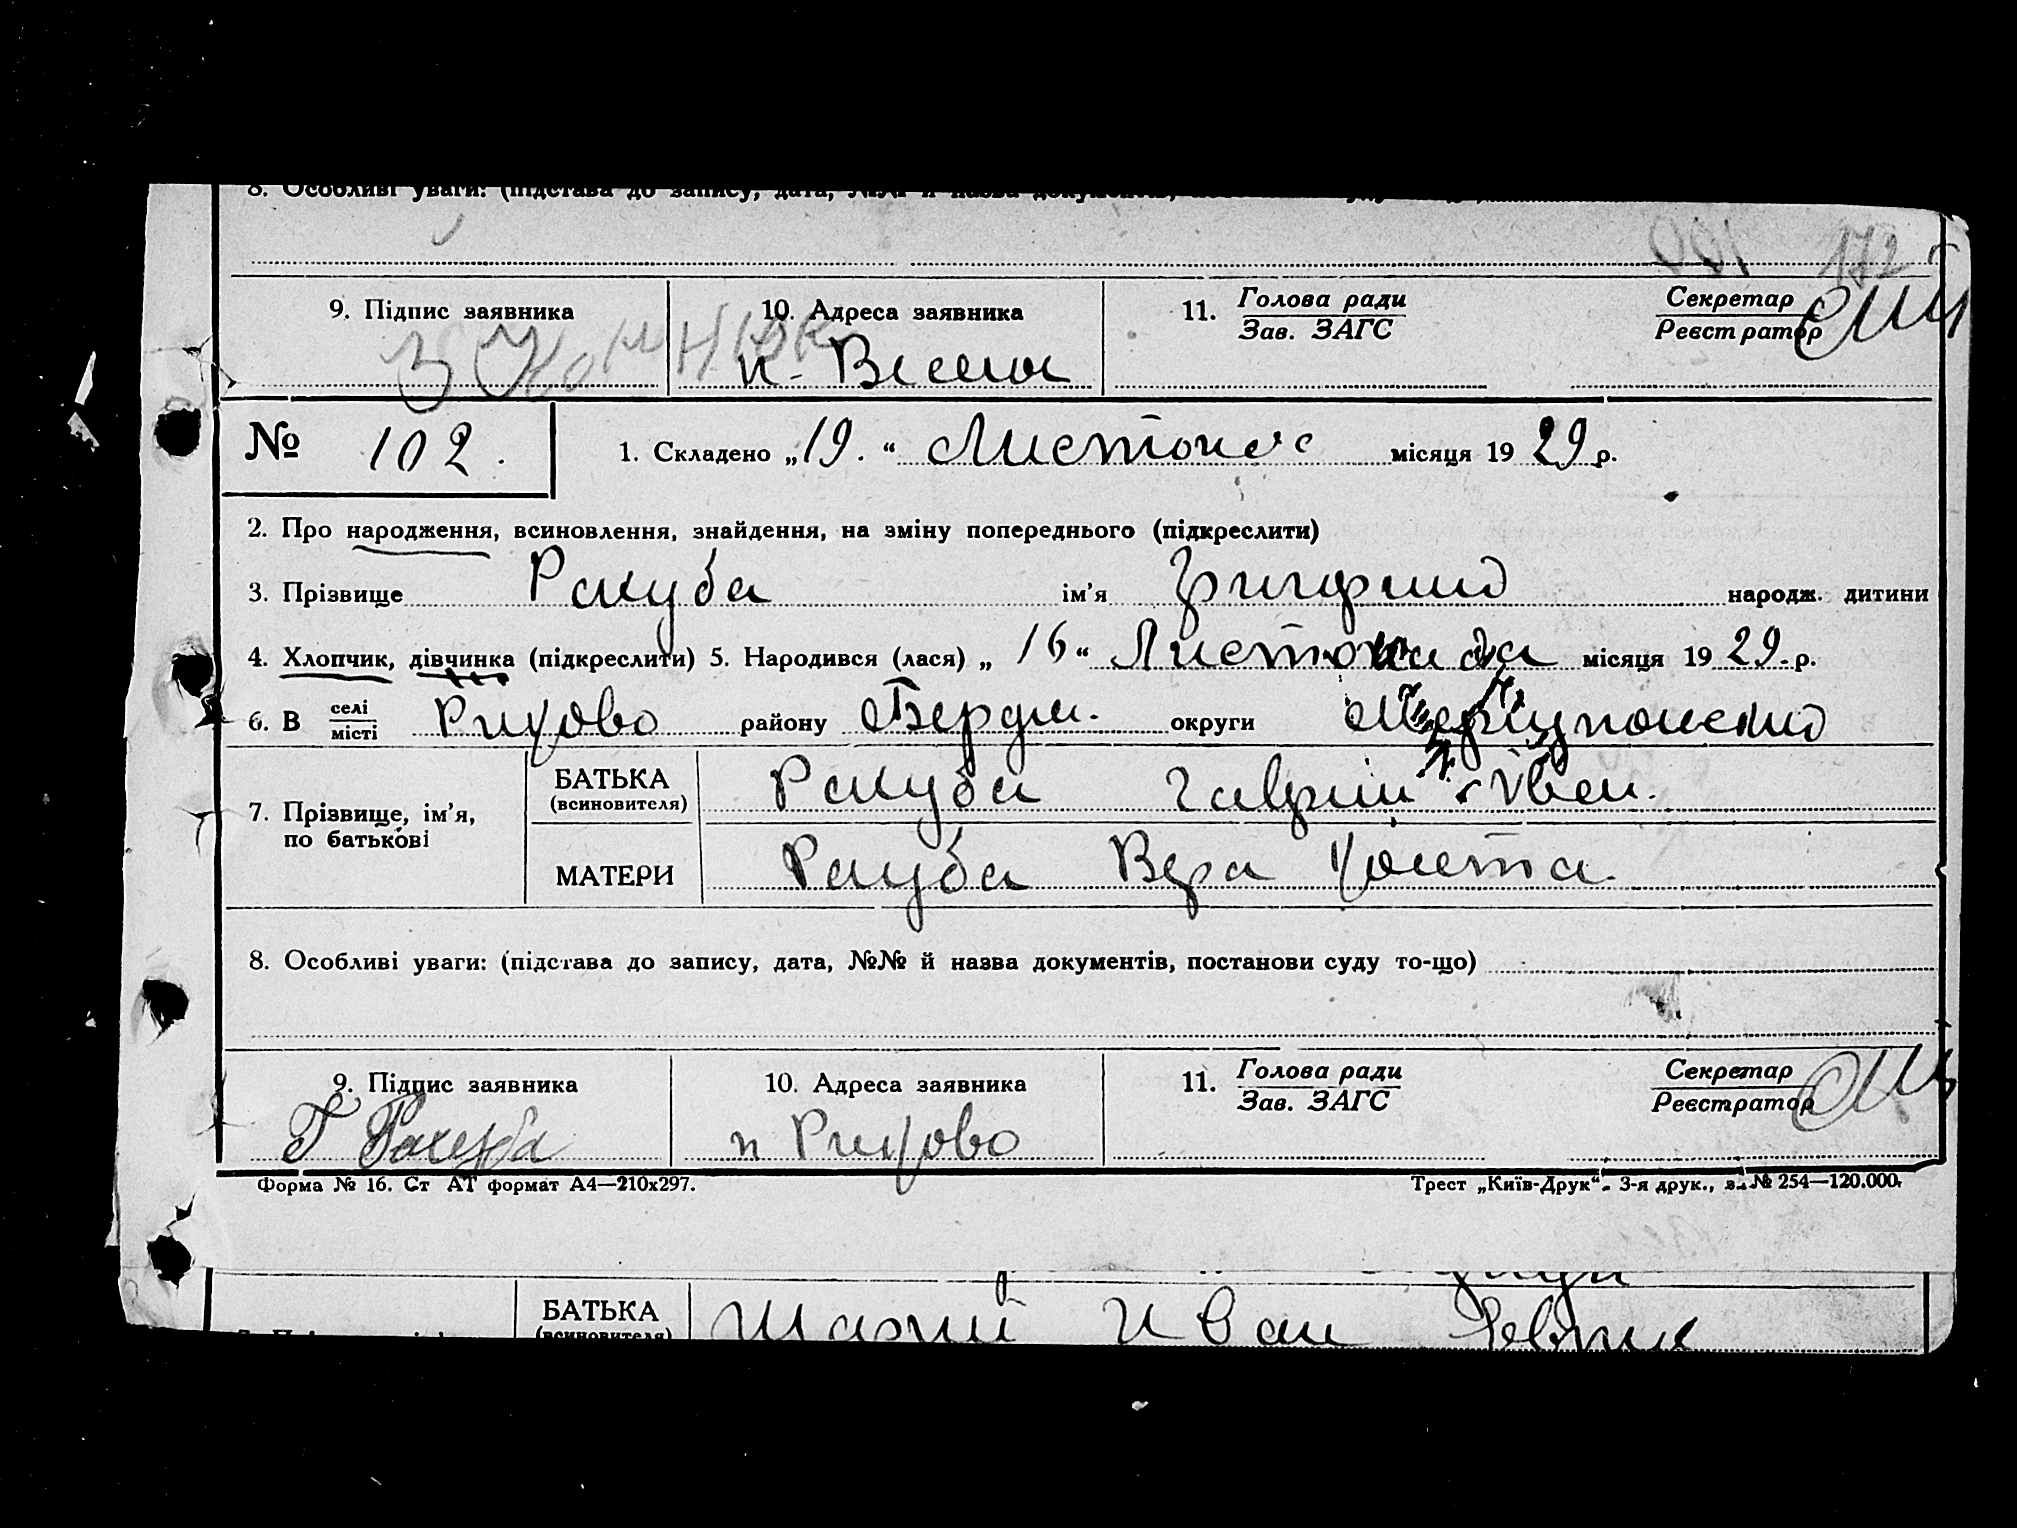 8. Особливі уваги: (підстава до запису, дата, №№ й назва документів,
172
9. Підпис заявника 10. Адреса заявника 11. Голова ради Зав. ЗАГС Секретар Реєстратор
№ 102. 1. Складено „19.“ Листопад місяця 1929 р.
2. Про народження, всиновлення, знайдення, на зміну попереднього (підкреслити)
3. Прізвище Ракуба ім'я Григорий народж. дитини
4. Хлопчик, дівчинка (підкреслити) 5. Народився (лася) „16“ Листопада місяця 1929 р.
6. В селі місті району Бердян. округи Мариупольский
7. Прізвище, ім'я, по батькові
БАТЬКА (всиновителя) Ракуба Гаврил Иван.
МАТЕРИ Ракуба Вера
8. Особливі уваги: (підстава до запису, дата, №№ й назва документів, постанови суду то-що)
9. Підпис заявника 10. Адреса заявника 11. Голова ради Зав. ЗАГС Секретар Реєстратор
Г Ракуба
Форма № 16. Ст АТ формат А4—210х297. Трест „Київ-Друк“. 3-я друк., з. № 254—120.000.
БАТЬКА (всиновителя) Иван